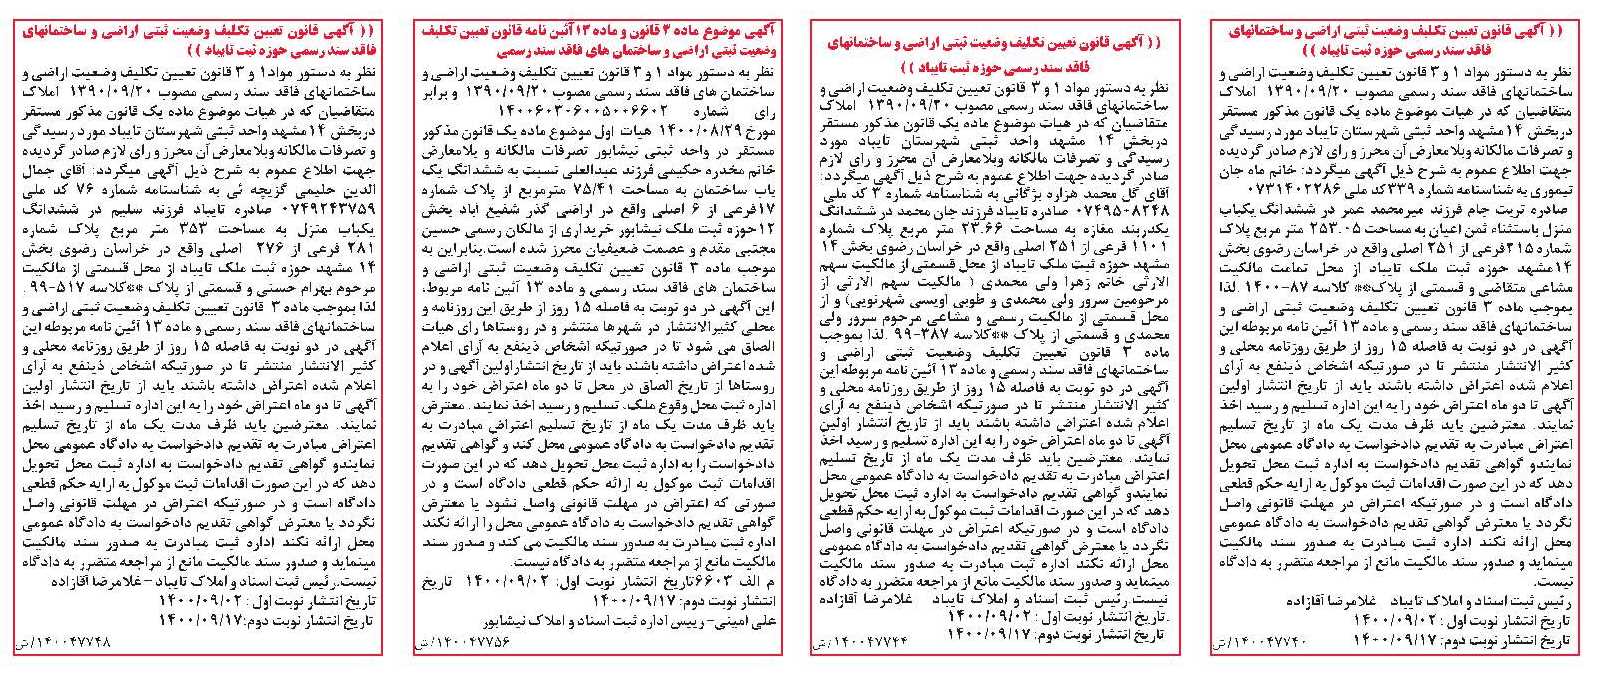 (( آگهی قانون تعیین تکلیف وضعیت ثبتی اراضی و ساختمانهای
فاقد سند رسمی حوزه ثبت تایباد ))
نظر به دستور مواد ۱ و ۳ قانون تعیین تکلیف وضعیت اراضی و
ساختمانهای فاقد سند رسمی مصوب ۱۳۹۰/۰۹/۲۰ املاک
متقاضیان که در هیات موضوع ماده یک قانون مذکور مستقر
دربخش ۱۴ مشهد واحد ثبتی شهرستان تایباد مورد رسیدگی
و تصرفات مالکانه وبلامعارض آن محرز و رای لازم صادر گردیده
جهت اطلاع عموم به شرح ذیل آگهی میگردد: خانم ماه جان
تیموری به شناسنامه شماره ۳۳۹ کد ملی ۰۷۳۱۴۰۲۲۸۶
صادره تربت جام فرزند میرمحمد عمر در ششدانگ یکباب
منزل باستثناء ثمن اعیان به مساحت ۲۵۳.۰۵ متر مربع پلاک
شماره ۳۱۵فرعی از ۲۵۱ اصلی واقع در خراسان رضوی بخش
۱۴مشهد حوزه ثبت ملک تایباد از محل تمامت مالکیت
مشاعی متقاضی و قسمتی از پلاک** کلاسه ۸۷-۱۴۰۰ .لذا
بموجب ماده ۳ قانون تعیین تکلیف وضعیت ثبتی اراضی و
ساختمانهای فاقد سند رسمی و ماده ۱۳ آئین نامه مربوطه این
آگهی در دو نوبت به فاصله ۱۵ روز از طریق روزنامه محلی و
کثیر الانتشار منتشر تا در صورتیکه اشخاص ذینفع به آرای
اعلام شده اعتراض داشته باشند باید از تاریخ انتشار اولین
آگهی تا دو ماه اعتراض خود را به این اداره تسلیم و رسید اخذ
نمایند. معترضین باید ظرف مدت یک ماه از تاریخ تسلیم
اعتراض مبادرت به تقدیم دادخواست به دادگاه عمومی محل
نمایندو گواهی تقدیم دادخواست به اداره ثبت محل تحویل
دهد که در این صورت اقدامات ثبت موکول به ارایه حکم قطعی
دادگاه است و در صورتیکه اعتراض در مهلت قانونی واصل
نگردد یا معترض گواهی تقدیم دادخواست به دادگاه عمومی
محل ارائه نکند اداره ثبت مبادرت به صدور سند مالکیت
مینماید و صدور سند مالکیت مانع از مراجعه متضرر به دادگاه
نیست.
رئیس ثبت اسناد و املاک تایباد غلامرضا آقازاده
تاریخ انتشار نوبت اول : ۱۴۰۰/۰۹/۰۲
تاریخ انتشار نوبت دوم: ۱۴۰۰/۰۹/۱۷
۱۴۰۰۴۷۷۴۰/ش
(( آگهی قانون تعیین تکلیف وضعیت ثبتی اراضی و ساختمانهای
فاقد سند رسمی حوزه ثبت تایباد ))
نظر به دستور مواد ۱ و ۳ قانون تعیین تکلیف وضعیت اراضی و
ساختمانهای فاقد سند رسمی مصوب ۱۳۹۰/۰۹/۲۰ املاک
متقاضیان که در هیات موضوع ماده یک قانون مذکور مستقر
دربخش ۱۴ مشهد واحد ثبتی شهرستان تایباد مورد
رسیدگی و تصرفات مالکانه وبلامعارض آن محرز و رای لازم
صادر گردیده جهت اطلاع عموم به شرح ذیل آگهی میگردد:
آقای گل محمد هزاره بژگانی به شناسنامه شماره ۳ کد ملی
۰۷۴۹۵۰۸۲۴۸ صادره تایباد فرزند جان محمد در ششدانگ
یکدربند مغازه به مساحت ۲۳.۶۶ متر مربع پلاک شماره
۱۱۰۱ فرعی از ۲۵۱ اصلی واقع در خراسان رضوی بخش ۱۴
مشهد حوزه ثبت ملک تایباد از محل قسمتی از مالکیت سهم
الارثی خانم زهرا ولی محمدی ( مالکیت سهم الارثی از
مرحومین سرور ولی محمدی و طوبی اویسی شهرنویی) و از
محل قسمتی از مالکیت رسمی و مشاعی مرحوم سرور ولی
محمدی و قسمتی از پلاک **کلاسه ۳۸۷-۹۹ .لذا بموجب
ماده ۳ قانون تعیین تکلیف وضعیت ثبتی اراضی و
ساختمانهای فاقد سند رسمی و ماده ۱۳ آئین نامه مربوطه این
آگهی در دو نوبت به فاصله ۱۵ روز از طریق روزنامه محلی و
کثیر الانتشار منتشر تا در صورتیکه اشخاص ذینفع به آرای
اعلام شده اعتراض داشته باشند باید از تاریخ انتشار اولین
آگهی تا دو ماه اعتراض خود را به این اداره تسلیم و رسید اخذ
نمایند. معترضین باید ظرف مدت یک ماه از تاریخ تسلیم
اعتراض مبادرت به تقدیم دادخواست به دادگاه عمومی محل
نمایندو گواهی تقدیم دادخواست به اداره ثبت محل تحویل
دهد که در این صورت اقدامات ثبت موکول به ارایه حکم قطعی
دادگاه است و در صورتیکه اعتراض در مهلت قانونی واصل
نگردد یا معترض گواهی تقدیم دادخواست به دادگاه عمومی
محل ارائه نکند اداره ثبت مبادرت به صدور سند مالکیت
مینماید و صدور سند مالکیت مانع از مراجعه متضرر به دادگاه
نیست.رئیس ثبت اسناد و املاک تایباد غلامرضا آقازاده
تاریخ انتشار نوبت اول : ۱۴۰۰/۰۹/۰۲
تاریخ انتشار نوبت دوم: ۱۴۰۰/۰۹/۱۷
۱۴۰۰۴۷۷۴۴/ش
آگهی موضوع ماده ۳ قانون و ماده ۱۳ آئین نامه قانون تعیین تکلیف
وضعیت ثبتی اراضی و ساختمان های فاقد سند رسمی
نظر به دستور مواد ۱ و ۳ قانون تعیین تکلیف وضعیت اراضی و
ساختمان های فاقد سند رسمی مصوب ۱۳۹۰/۰۹/۲۰ و برابر
رای شماره ۱۴۰۰۶۰۳۰۶۰۰۵۰۰۶۶۰۲
مورخ ۱۴۰۰/۰۸/۲۹ هیات اول موضوع ماده یک قانون مذکور
مستقر در واحد ثبتی نیشابور تصرفات مالکانه و بلامعارض
خانم مخدره حکیمی فرزند عبدالعلی نسبت به ششدانگ یک
باب ساختمان به مساحت ۷۵/۴۱ مترمربع از پلاک شماره
۱۷فرعی از ۶ اصلی واقع در اراضی گذر شفیع آباد بخش
۱۲حوزه ثبت ملک نیشابور خریداری از مالکان رسمی حسین
مجتبی مقدم و عصمت ضعیفیان محرز شده است.بنابراین به
موجب ماده ۳ قانون تعیین تکلیف وضعیت ثبتی اراضی و
ساختمان های فاقد سند رسمی و ماده ۱۳ آئین نامه مربوط،
این آگهی در دو نوبت به فاصله ۱۵ روز از طریق این روزنامه و
محلی کثیرالانتشار در شهرها منتشر و در روستاها رای هیات
الصاق می شود تا در صورتیکه اشخاص ذینفع به آرای اعلام
شده اعتراض داشته باشند باید از تاریخ انتشاراولین آگهی و در
روستاها از تاریخ الصاق در محل تا دو ماه اعتراض خود را به
اداره ثبت محل وقوع ملک، تسلیم و رسید اخذ نمایند. معترض
باید ظرف مدت یک ماه از تاریخ تسلیم اعتراض مبادرت به
تقدیم دادخواست به دادگاه عمومی محل کنند و گواهی تقدیم
دادخواست را به اداره ثبت محل تحویل دهد که در این صورت
اقدامات ثبت موکول به ارائه حکم قطعی دادگاه است و در
صورتی که اعتراض در مهلت قانونی واصل نشود یا معترض
گواهی تقدیم دادخواست به دادگاه عمومی محل را ارائه نکند
اداره ثبت مبادرت به صدور سند مالکیت می کند و صدور سند
مالکیت مانع از مراجعه متضرر به دادگاه نیست.
م الف ۶۶۰۳تاریخ انتشار نوبت اول: ۱۴۰۰/۰۹/۰۲ تاریخ
انتشار نوبت دوم: ۱۴۰۰/۰۹/۱۷
علی امینی- رییس اداره ثبت اسناد و املاک نیشابور
۱۴۰۰۴۷۷۵۶/ش
(( آگهی قانون تعیین تکلیف وضعیت ثبتی اراضی و ساختمانهای
فاقد سند رسمی حوزه ثبت تایباد ))
نظر به دستور مواد ۱ و ۳ قانون تعیین تکلیف وضعیت اراضی و
ساختمانهای فاقد سند رسمی مصوب ۱۳۹۰/۰۹/۲۰ املاک
متقاضیان که در هیات موضوع ماده یک قانون مذکور مستقر
دربخش ۱۴مشهد واحد ثبتی شهرستان تایباد مورد رسیدگی
و تصرفات مالکانه وبلامعارض آن محرز و رای لازم صادر گردیده
جهت اطلاع عموم به شرح ذیل آگهی میگردد: آقای جمال
الدین حلیمی گزیچه ئی به شناسنامه شماره ۷۶ کد ملی
۰۷۴۹۲۴۳۷۵۹ صادره تایباد فرزند سلیم در ششدانگ
یکباب منزل به مساحت ۳۵۳ متر مربع پلاک شماره
۲۸۱ فرعی از ۲۷۶ اصلی واقع در خراسان رضوی بخش
۱۴ مشهد حوزه ثبت ملک تایباد از محل قسمتی از مالکیت
مرحوم بهرام حسنی و قسمتی از پلاک **کلاسه ۵۱۷-۹۹ .
لذا بموجب ماده ۳ قانون تعیین تکلیف وضعیت ثبتی اراضی و
ساختمانهای فاقد سند رسمی و ماده ۱۳ آئین نامه مربوطه این
آگهی در دو نوبت به فاصله ۱۵ روز از طریق روزنامه محلی و
کثیر الانتشار منتشر تا در صورتیکه اشخاص ذینفع به آرای
اعلام شده اعتراض داشته باشند باید از تاریخ انتشار اولین
آگهی تا دو ماه اعتراض خود را به این اداره تسلیم و رسید اخذ
نمایند. معترضین باید ظرف مدت یک ماه از تاریخ تسلیم
اعتراض مبادرت به تقدیم دادخواست به دادگاه عمومی محل
نمایندو گواهی تقدیم دادخواست به اداره ثبت محل تحویل
دهد که در این صورت اقدامات ثبت موکول به ارایه حکم قطعی
دادگاه است و در صورتیکه اعتراض در مهلت قانونی واصل
نگردد یا معترض گواهی تقدیم دادخواست به دادگاه عمومی
محل ارائه نکند اداره ثبت مبادرت به صدور سند مالکیت
مینماید و صدور سند مالکیت مانع از مراجعه متضرر به دادگاه
نیست..رئیس ثبت اسناد و املاک تایباد –غلامرضا آقازاده
تاریخ انتشار نوبت اول : ۱۴۰۰/۰۹/۰۲
تاریخ انتشار نوبت دوم:۱۴۰۰/۰۹/۱۷
۱۴۰۰۴۷۷۴۸/ش